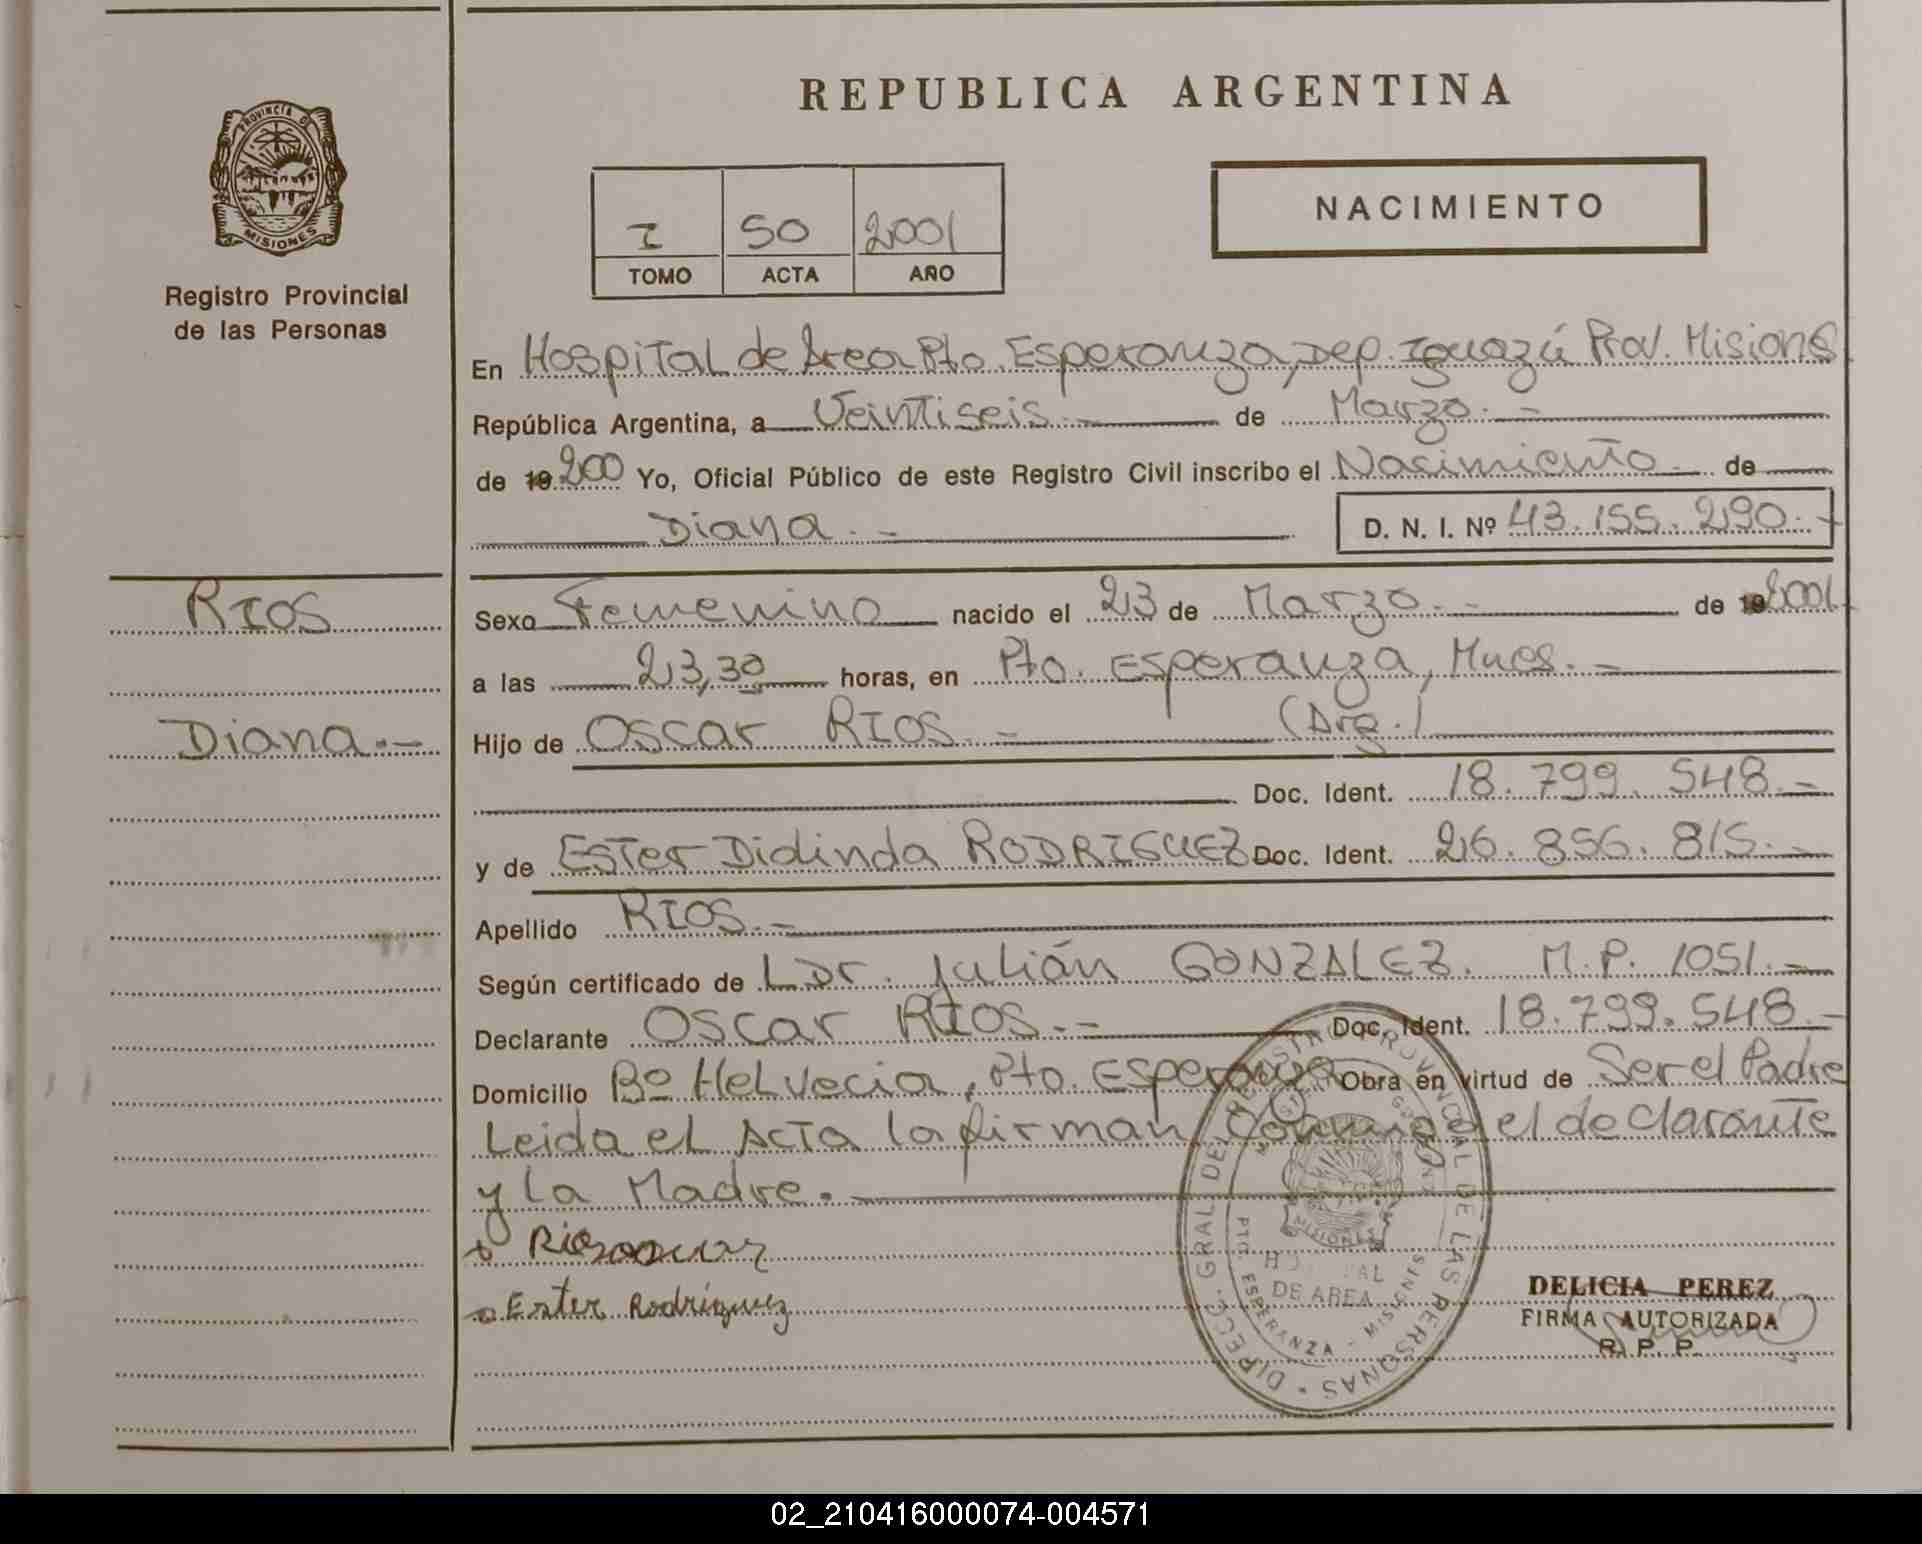 REPUBLICA ARGENTINA
PROVINCIA DE
MISIONES
Registro Provincial
de las Personas
I 50 2001
TOMO ACTA AÑO
NACIMIENTO
En Hospital de Area Pto. Esperanza, Dep. Iguazú Prov. Misions
República Argentina, a Veintiseis.- de Marzo.-
de 19 200 Yo, Oficial Público de este Registro Civil inscribo el Nasimiento de
Diana.-
D. N. I. Nº 43.155.290.-
RIOS
Diana.-
Sexo Femenino nacido el 23 de Marzo.- de 19 2001
a las 23,30 horas, en Pto. Esperanza, Mnes.-
Hijo de Oscar RIOS.- (Arg.)
Doc. Ident. 18.799.548.-
y de Ester Didinda RODRIGUEZ Doc. Ident. 26.856.815.-
Apellido RIOS.-
Según certificado de L Dr. Julián GONZALEZ. M.P. 1051.-
Declarante Oscar RIOS.- Doc. Ident. 18.799.548.-
Domicilio Bº Helvecia, Pto. Esperanza Obra en virtud de Ser el Padre
Leida el Acta la firman Conmigo el declarante
y la Madre.
Rios oscar
Ester Rodriguez
DIRECC. GRAL DE REGISTRO PROVINCIAL DE LAS PERSONAS
HOSPITAL
DE AREA
PTO. ESPERANZA - MISIONES
MISIONES
DELICIA PEREZ
FIRMA AUTORIZADA
R. P. P.
02_210416000074-004571